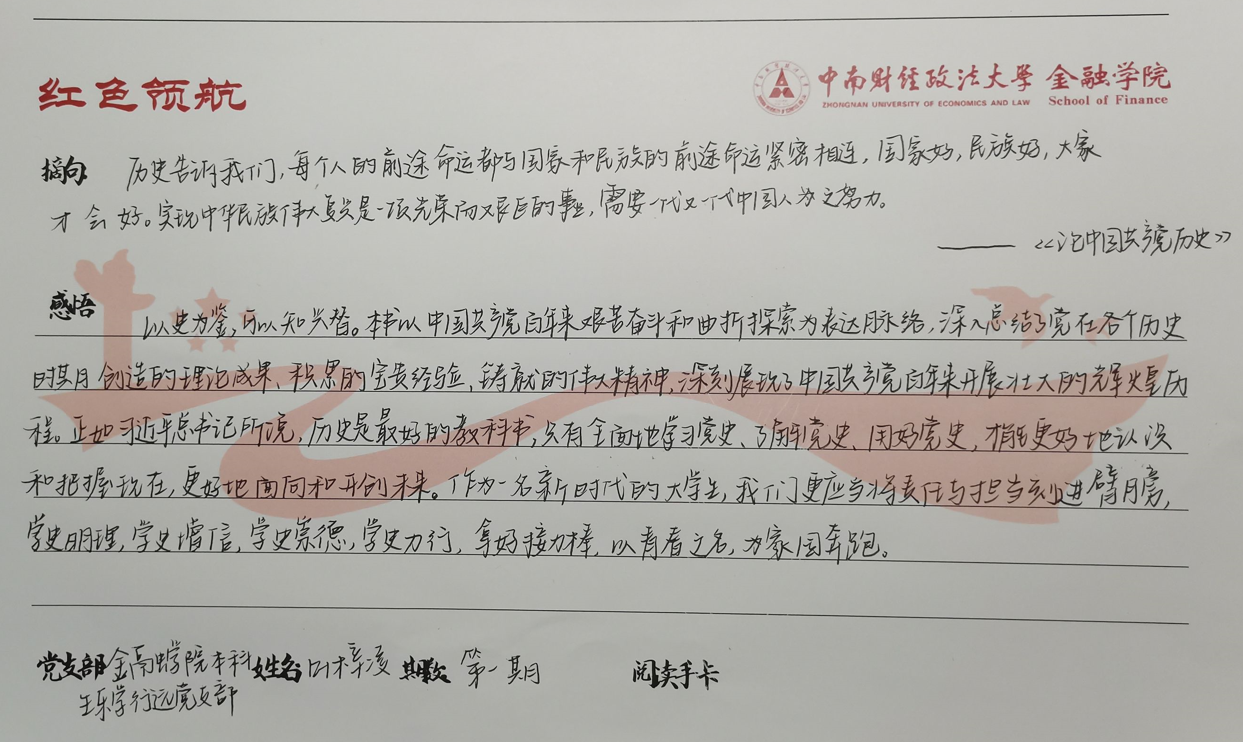 红色领航
中南财经政法大学 金融学院
ZHONGNAN UNIVERSITY OF ECONOMICS AND LAW School of Finance
摘句 历史告诉我们,每个人的前途命运都与国家和民族的前途命运紧密相连,国家好,民族好,大家
才会好。实现中华民族伟大复兴是一项光荣而艰巨的事业,需要一代又一代中国人为之努力。
——《论中国共产党历史》
感悟 以史为鉴,可以知兴替。本书以中国共产党百年来艰苦奋斗和曲折探索为表达脉络,深入总结了党在各个历史
时期创造的理论成果、积累的宝贵经验、铸就的伟大精神,深刻展现了中国共产党百年来开展壮大的辉煌历
程。正如习近平总书记所说,历史是最好的教科书,只有全面地学习党史、了解党史、用好党史,才能更好地认识
和把握现在,更好地面向和开创未来。作为一名新时代的大学生,我们更应当将责任与担当刻进臂膀,
学史明理,学史增信,学史崇德,学史力行,拿好接力棒,以青春之名,为家国奔跑。
党支部 金融学院本科 姓名 叶梓凌 期数 第一期 阅读手卡
生乐学行远党支部